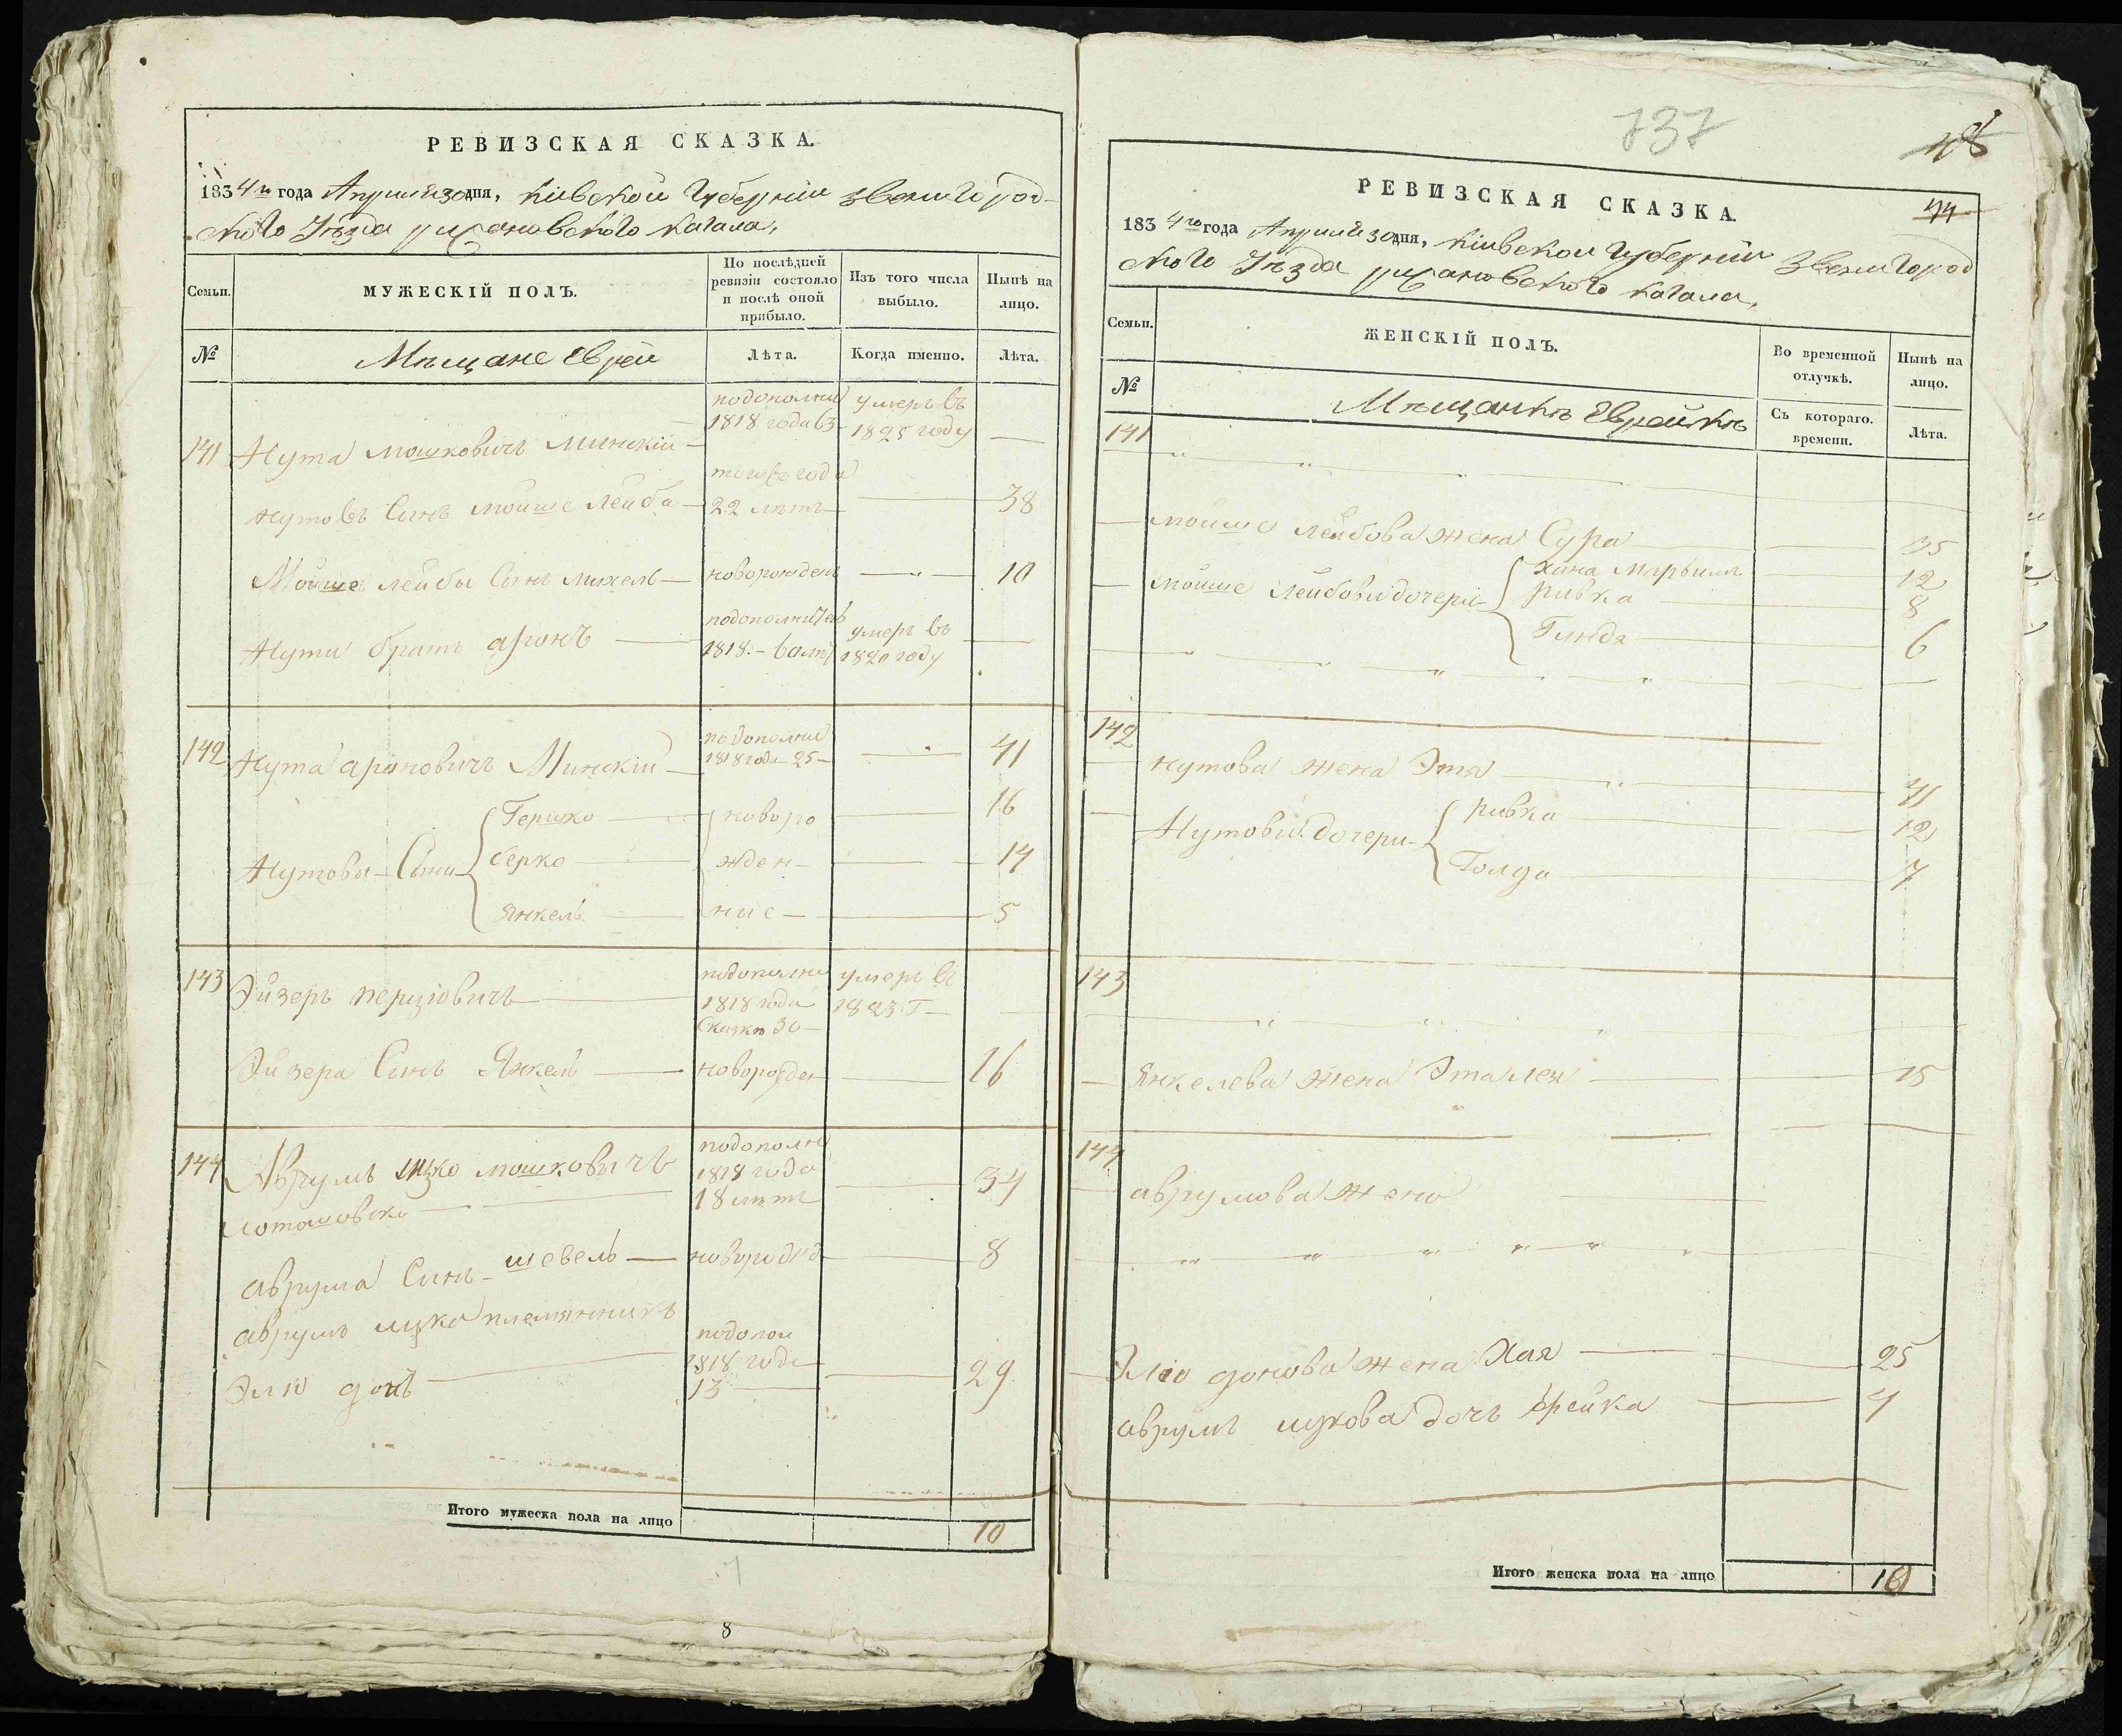 РЕВИЗСКАЯ СКАЗКА.
1834го года Априля 30 дня, Кіевской Губерніи Звенигород-
ского Уѣзда рижановского кагала,
Семьи.
МУЖЕСКІЙ ПОЛЪ.
По послѣдней ревизіи состояло и послѣ оной прибыло.
Изъ того числа выбыло.
Нынѣ на лицо.
№
Мѣщане Евреи
Лѣта.
Когда именно.
Лѣта.
подополни умеръ въ
1818 года 1825 году
141 Нута Мошковичъ Минскій
того года
Нутовъ Сынъ Мойше Лейба 22 лѣтъ 38
Мойше Лейбы Сынъ Михель новорожден 10
подополни умеръ въ
Нути братъ аронъ 1818 1820 году
142 Нута ароновичъ Минскій подополни 1818 года 25 41
Гершко новоро 16
Нутови Сыни Берко жден 14
Янкель ные 5
143 Эйзеръ перціовичъ подополни 1818 года Сказкѣ 30 умеръ въ 1823 г
Эйзера Сынъ Янкель новорожден 16
144 Аврумъ ицко мошковичъ подополни 1818 года 18 лѣтъ 34
аврума Сынъ шевель новорожд 8
аврумъ ицка племянникъ
Элю 1818 года 13 29
Итого мужеска пола на лицо 10
8
737
44
РЕВИЗСКАЯ СКАЗКА
1834го года Априля 30 дня, Кіевской Губерніи Звенигород
ского Уѣзда рижановского кагала,
Семьи.
ЖЕНСКІЙ ПОЛЪ.
Во временной отлучкѣ.
Нынѣ на лицо.
№
Мѣщанкѣ Еврейкѣ
Съ котораго. времени.
Лѣта.
141
Мойше Лейбова жена Сура 35
Хана Марьямъ 12
Мойше Лейбови дочери Ривка 8
Глидя 6
142
Нутова жена Этя 41
Нутови дочери Ривка 12
Голда 7
143
Янкелева жена Эталея 15
144
аврумова жена
Элю жена Хая 25
аврумъ ицкова дочъ Фрейка 4
Итого женска пола на лицо 10